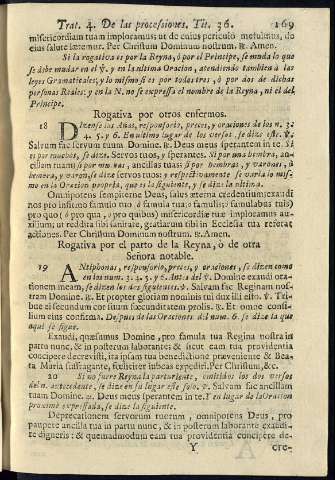 Trat. 4. De las procesiones. Tit. 36. 169
misericordiam tuam imploramus: ut de cuius periculo metuimus, de
eius salute lætemur. Per Christum Dominum nostrum. ℟. Amen.
Si la rogativa es por la Reyna, ò por el Principe, se muda lo que
se debe mudar en el ℣. y en la ultima Oracion, atendiendo tambien à las
leyes Gramaticales; y lo mismo si es por todos tres, ò por dos de dichas
personas Reales: y en la N. no se expressa el nombre de la Reyna, ni el del
Principe.
Rogativa por otros enfermos.
18 Dizense las Añas, responsorio, preces, y oraciones de los n. 3.
4. 5. y 6. En ultimo lugar de los versos, se dize este. ℣.
Salvum fac servum tuum Domine. ℟. Deus meus sperantem in te. Si
es por muchos, se dize. Servos tuos; y, sperantes. Si por una hembra, an-
cillam tuam: si por muchas, ancillas tuas: si por hombres, y
varon, se dize servos tuos: y respectivamente se varia lo mis-
mo en la Oracion propria, que es la siguiente, y se dize la ultima.
Omnipotens sempiterne Deus, salus æterna credentium: exaudi
nos pro infirmo famulo tuo (ò famula tua: famulis; famulabus tuis)
pro quo (ò pro qua, ò pro quibus) misericordiæ tuæ imploramus au-
xilium: ut reddita sibi sanitate, gratiarum tibi in Ecclesia tua referat
actiones. Per Christum Dominum nostrum. ℟. Amen.
Rogativa por el parto de la Reyna, ò de otra
Señora notable.
19 Antiphonas, responsorio, preces, y oraciones, se dizen como
en los num. 3. 4. 5. y 6. Antes del ℣. Domine exaudi ora-
tionem meam, se dizen los dos siguientes. ℣. Salvam fac Reginam nos-
tram Domine. ℟. Et propter gloriam nominis tui dux illi esto. ℣. Tri-
bue ei secundum cor suum fœcunditatem prolis. ℟. Et omne consi-
lium eius confirma. Despues de las Oraciones del num. 6. se dize la que
aqui se sigue.
Exaudi, quæsumus Domine, pro famula tua Regina nostra in
partu nunc, & in posterum laborantes: & sicut eam tua providentia
concipere decrevisti, ita ipsam tua benedictione præveniente & Bea-
ta Maria suffragante, fæliciter iubeas expediri. Per Christum, &c.
20 Si no fuere Reyna la parturiente, omitidos los dos versos
del n. antecedente, se dize en su lugar este solo. ℣. Salvam fac ancillam
tuam Domine. ℟. Deus meus sperantem in te. Y en lugar de la Oracion
proxime expressada, se dize la siguiente.
Deprecationem servorum tuorum, omnipotens Deus, pro
paupere ancilla tua in partu nunc, & in posterum laborante exaudi-
re digneris: & quemadmodum eam tua providentia concipere de-
Y cre-